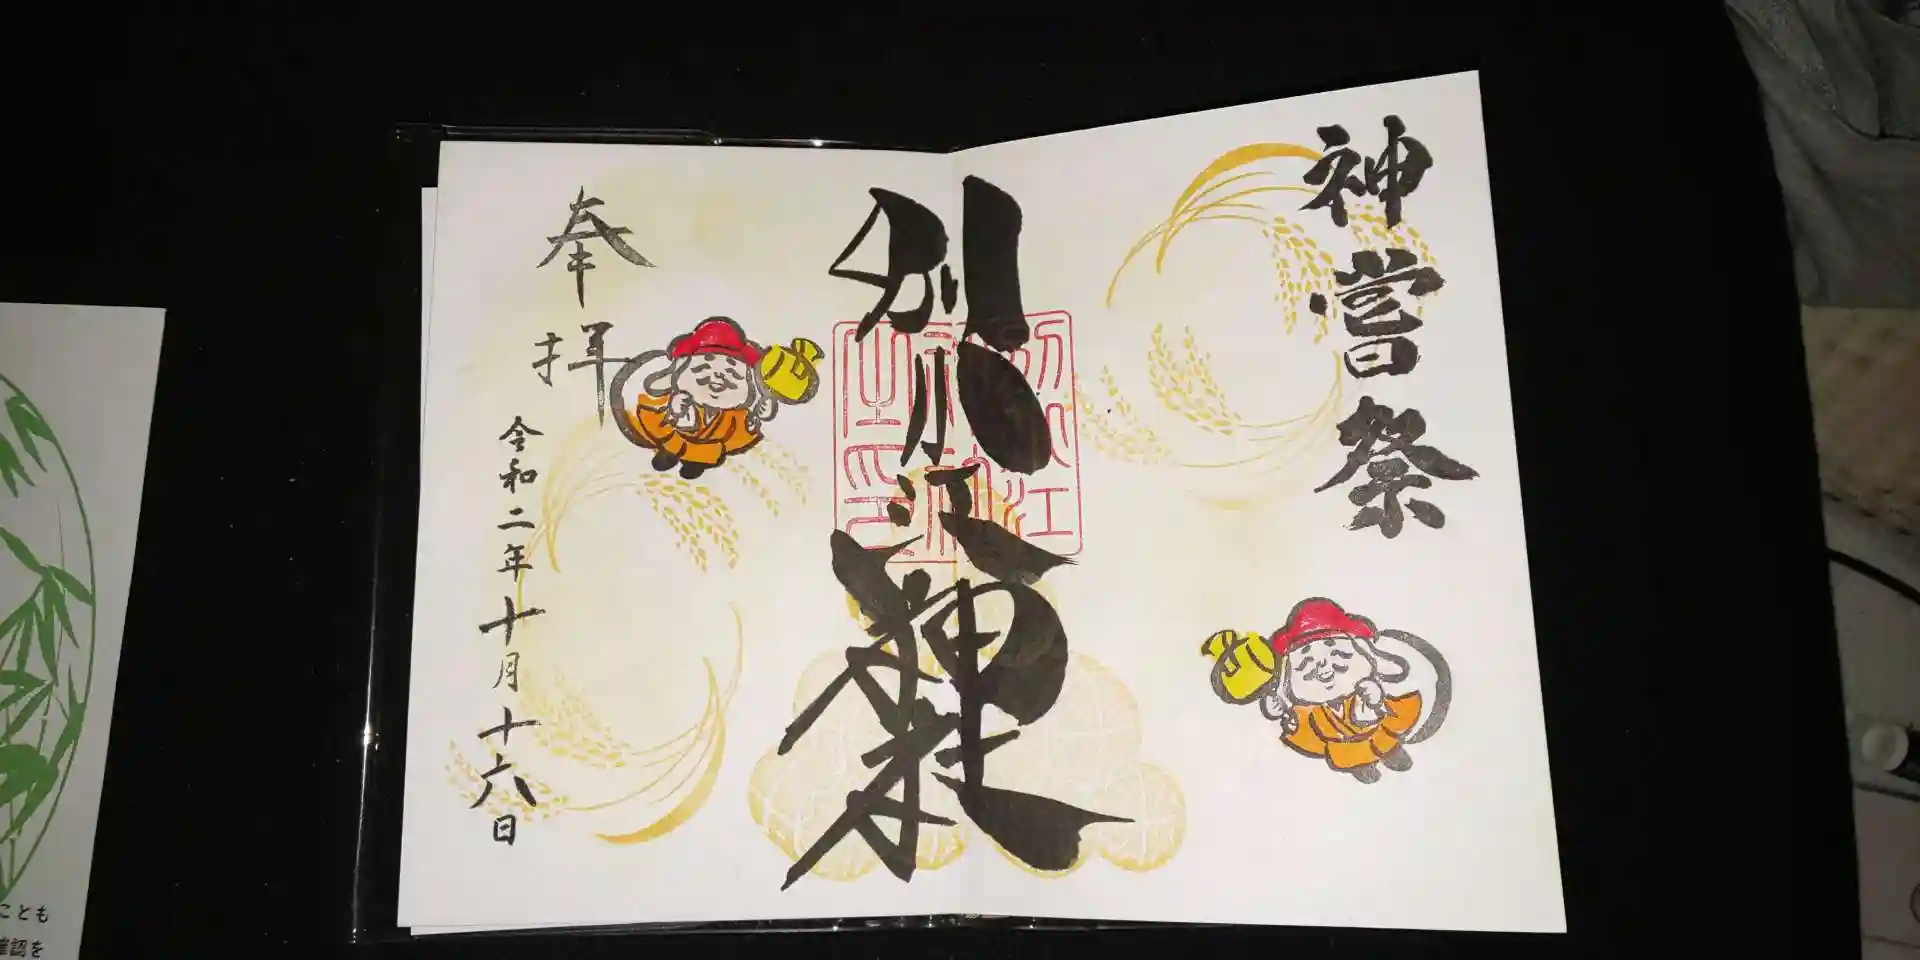 神嘗祭
別小江神社
別小江
神社
之印
奉拝
令和二年十月十六日
ことも
確認を